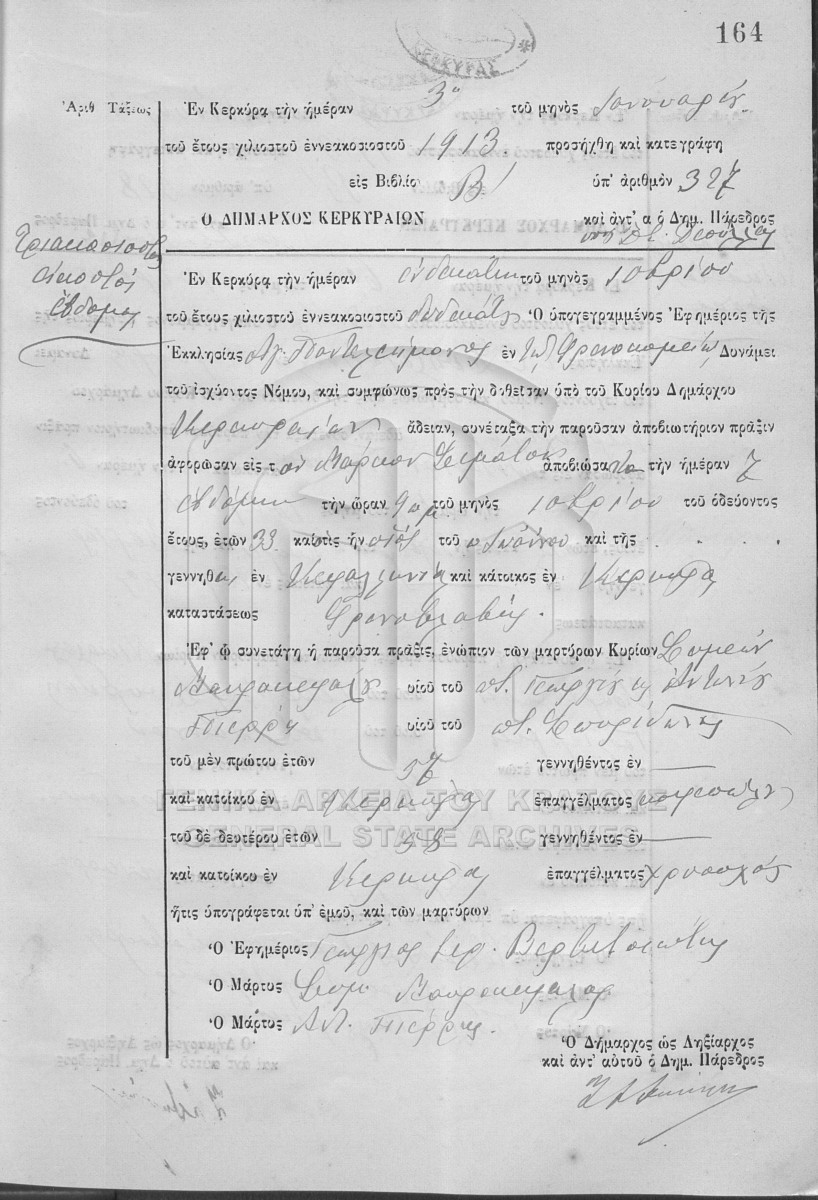 164
ΚΕΡΚΥΡΑΣ
Ἀριθ Τάξεως
Ἐν Κερκύρᾳ τὴν ἡμέραν 3ῃ τοῦ μηνὸς Ἰανουαρίου
τοῦ ἔτους χιλιοστοῦ ἐννεακοσιοστοῦ 1913. προσήχθη καὶ κατεγράφη
εἰς Βιβλίο Β' ὑπ' ἀριθμὸν 327
Ο ΔΗΜΑΡΧΟΣ ΚΕΡΚΥΡΑΙΩΝ καὶ ἀντ' α ὁ Δημ. Πάρεδρος
Τριακοσιοστὸς
εἰκοστὸς
ἕβδομος
Ἐν Κερκύρᾳ τὴν ἡμέραν ἑνδεκάτην τοῦ μηνὸς 10βρίου
τοῦ ἔτους χιλιοστοῦ ἐννεακοσιοστοῦ δωδεκάτου Ὁ ὑπογεγραμμένος Ἐφημέριος τῆς
Ἐκκλησίας Ἁγ. Παντελεήμονος ἐν τῷ Φρενοκομείῳ Δυνάμει
τοῦ ἰσχύοντος Νόμου, καὶ συμφώνως πρὸς τὴν δοθεῖσαν ὑπὸ τοῦ Κυρίου Δημάρχου
Κερκυραίων ἄδειαν, συνέταξα τὴν παροῦσαν ἀποβιωτήριον πρᾶξιν
ἀφορῶσαν εἰς τ ὸν Μάρκον ἀποβιώσαντα τὴν ἡμέραν 7
ἑβδόμην τὴν ὥραν 9 τοῦ μηνὸς 10βρίου τοῦ ὁδεύοντος
ἔτους, ἐτῶν 33 καὶ ὅστις ἦν υἱὸς τοῦ Ἰωάννου καὶ τῆς
γεννηθεὶς ἐν Κεφαλληνίᾳ καὶ κάτοικος ἐν Κερκύρᾳ
καταστάσεως Φρενοβλαβής.
Ἐφ' ᾧ συνετάγη ἡ παροῦσα πρᾶξις, ἐνώπιον τῶν μαρτύρων Κυρίων Συμεὼν
Μαυροκεφάλου υἱοῦ τοῦ ποτ. Γεωργίου κ Ἀντωνίου
Πιέρρη υἱοῦ τοῦ ποτ. Σπυρίδωνος
τοῦ μὲν πρώτου ἐτῶν 57 γεννηθέντος ἐν
καὶ κατοίκου ἐν Κερκύρᾳ ἐπαγγέλματος
τοῦ δὲ δευτέρου ἐτῶν 58 γεννηθέντος ἐν
καὶ κατοίκου ἐν Κερκύρᾳ ἐπαγγέλματος χρυσοχόος
ἥτις ὑπογράφεται ὑπ' ἐμοῦ, καὶ τῶν μαρτύρων
Ὁ Ἐφημέριος Γεώργιος ἱερ. Βερβιτσιώτης
Ὁ Μάρτυς Συμ. Μαυροκέφαλος
Ὁ Μάρτυς Αντ. Πιέρρης.
Ὁ Δήμαρχος ὡς Ληξίαρχος
καὶ ἀντ' αὐτοῦ ὁ Δημ. Πάρεδρος
ΓΕΝΙΚΑ ΑΡΧΕΙΑ ΤΟΥ ΚΡΑΤΟΥΣ
GENERAL STATE ARCHIVES